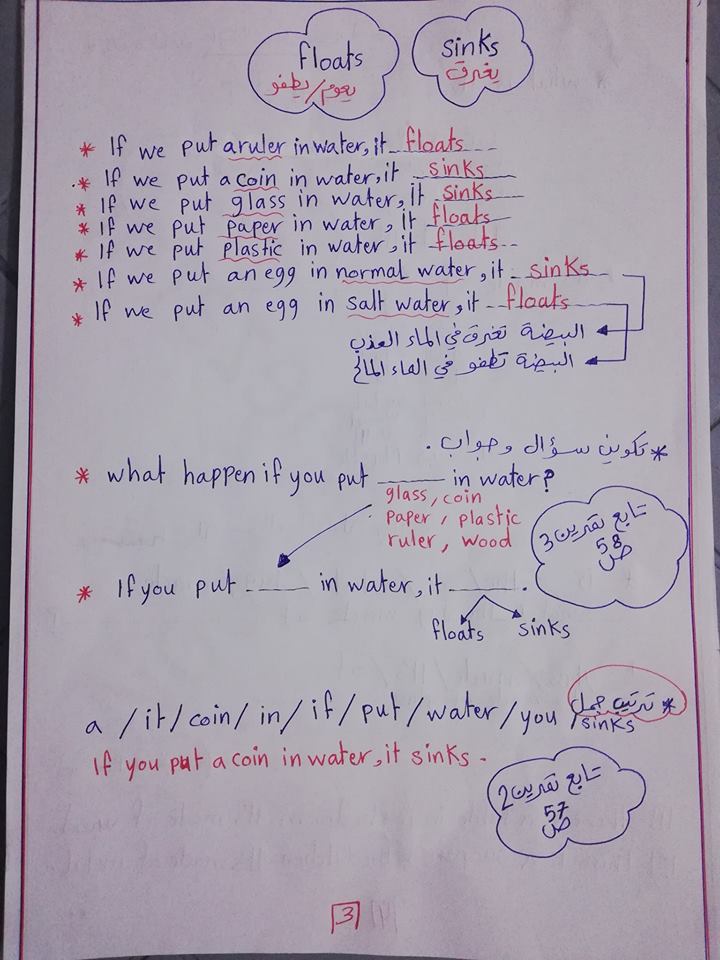 floats
يعوم/يطفو
sinks
يغرق
* If we put a ruler in water, it floats
* If we put a coin in water, it sinks
* If we put glass in water, it sinks
* If we put paper in water, it floats
* If we put plastic in water, it floats
* If we put an egg in normal water, it sinks
* If we put an egg in salt water, it floats
البيضة تغرق في الماء العذب
البيضة تطفو في الماء المالح
* تكوين سؤال وجواب.
* what happen if you put ______ in water?
glass, coin
paper, plastic
ruler, wood
تابع تمرين 3
ص 58
* If you put ______ in water, it ______.
floats sinks
* ترتيب جمل
a / it / coin / in / if / put / water / you / sinks
If you put a coin in water, it sinks.
تابع تمرين 2
ص 57
3